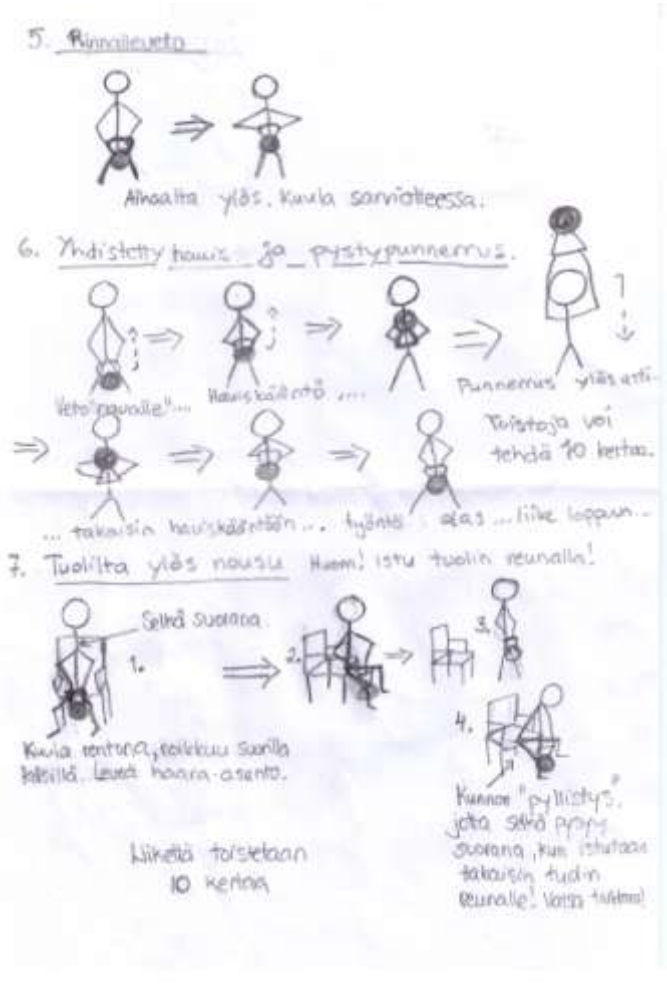 5. Rinnalleveto
Alhaalta ylös. Kuula sarviotteessa.
6. Yhdistetty hauis- ja pystypunnerrus.
Veto "navalle"...
Hauiskääntö ....
Punnerrus ylös asti.
Toistoja voi
tehdä 10 kertaa.
... takaisin hauiskääntöön ... työntö alas ... liike loppuun...
7. Tuolilta ylös nousu Huom! istu tuolin reunalla!
Selkä suorana.
1.
2.
3.
4.
Kuula rentona, roikkuu suorilla
käsillä. Leveä haara-asento.
Kunnon "pyllistys",
jotta selkä pysyy
suorana, kun istutaan
takaisin tuolin
reunalle!
Liikettä toistetaan
10 kertaa